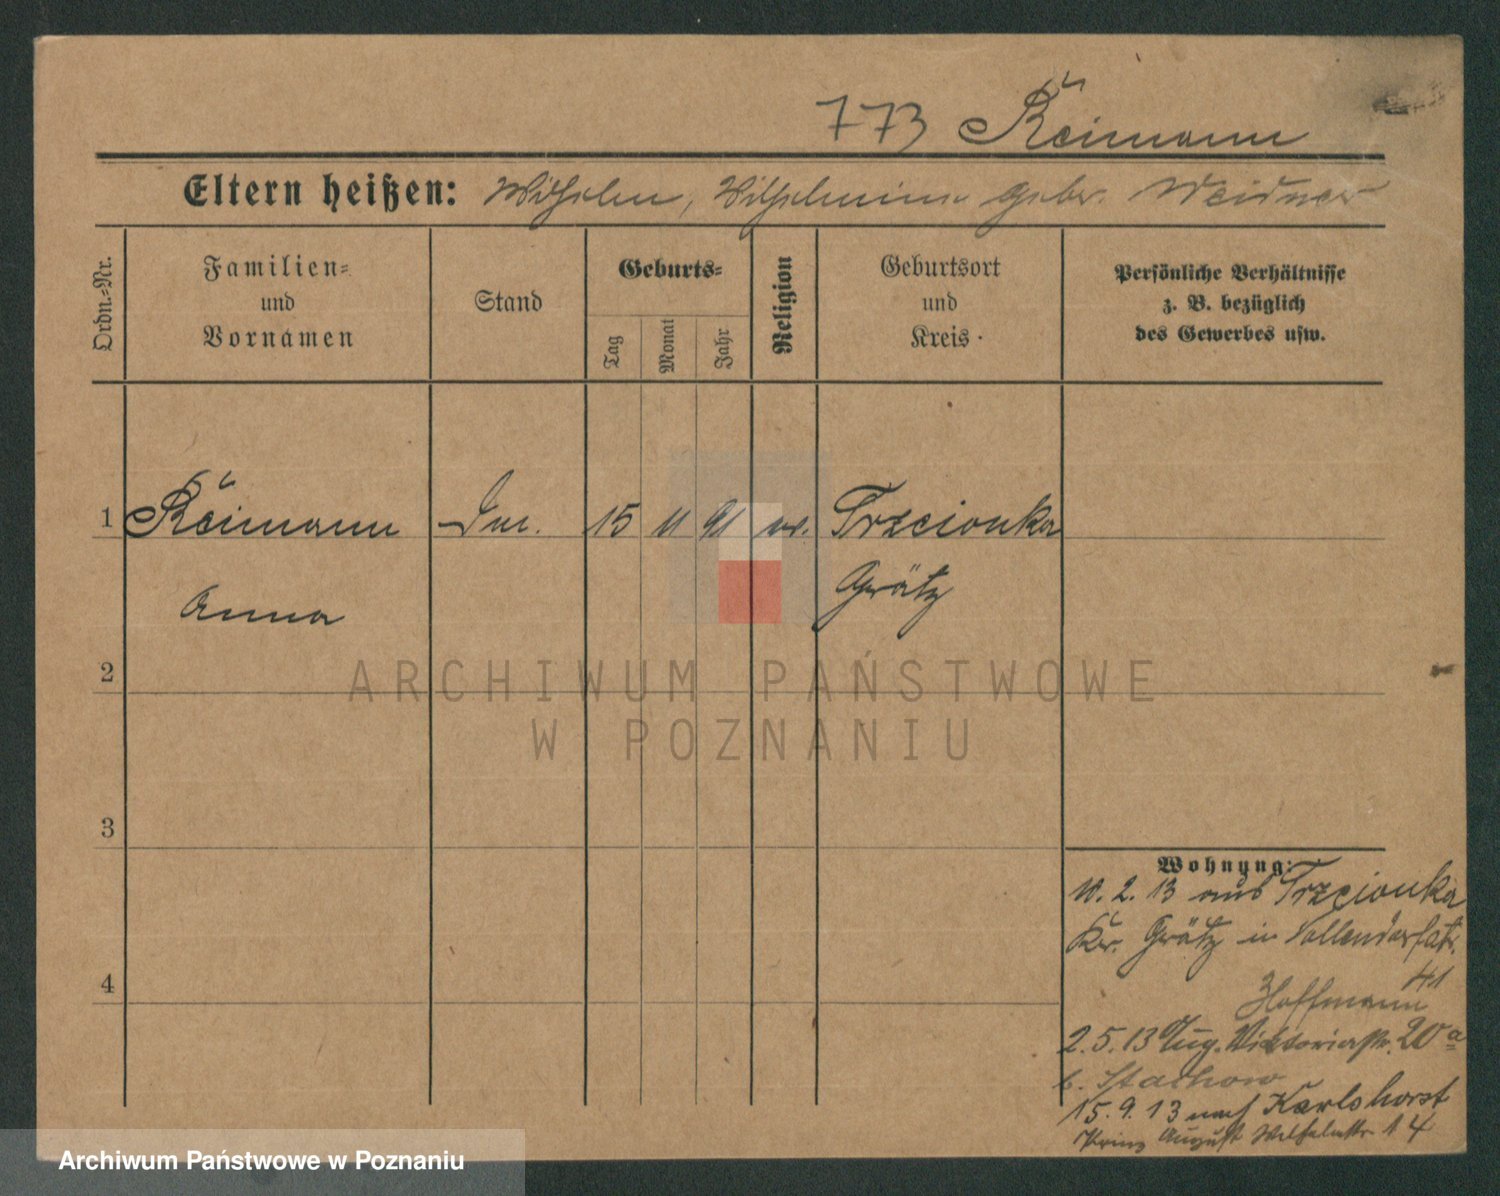 773 Reimann
Eltern heißen: Wilhelm, Wilhelmine gebr. Weidner
Ordn.-Nr.
Familien-
und
Vornamen
Stand
Geburts-
Tag
Monat
Jahr
Religion
Geburtsort
und
Kreis
Persönliche Verhältnisse
z. B. bezüglich
des Gewerbes usw.
1 Reimann 15 11 91 ev. Trzcionka
Anna Grätz
2
ARCHIWUM PAŃSTWOWE
W POZNANIU
3
Wohnung:
10. 2. 13 aus Trzcionka
Kr. Grätz in
41
Hoffmann
2. 5. 13 Aug. Viktoriastr. 20a
b. Stachow
15. 9. 13 nach Karlshorst
Prinz August Wilhelmstr 14
4
Archiwum Państwowe w Poznaniu